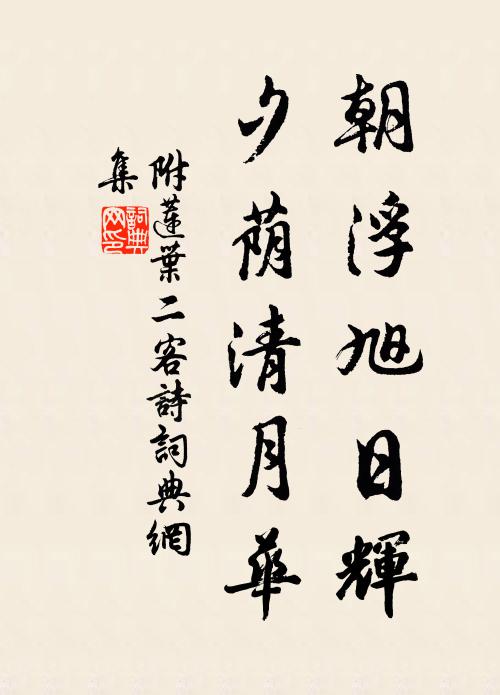 朝浮旭日輝
夕蔭清月華
附蓮葉二客詩詞典網
集
詞典網印